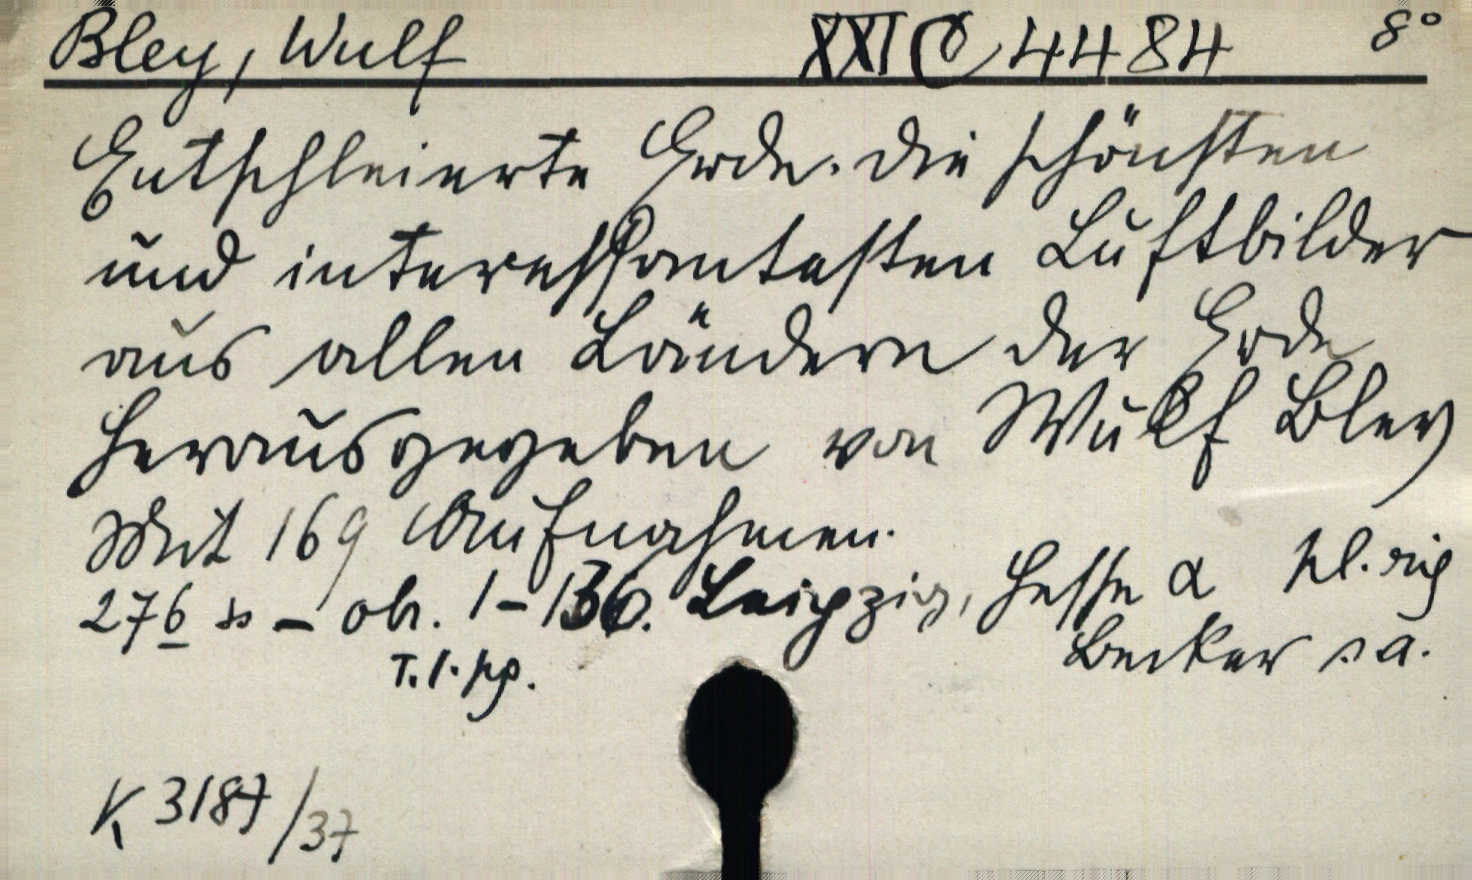 Bley, Wulf XXI C 4484 8°
Entschleierte Erde. Die schönsten
und interessantesten Luftbilder
aus allen Ländern der Erde
herausgegeben von Wulf Bley
Mit 169 Aufnahmen.
276 s – obr. 1–136. Leipzig, Hesse & pl. rig
Becker s.a.
T.l. pp.
K 3187/37